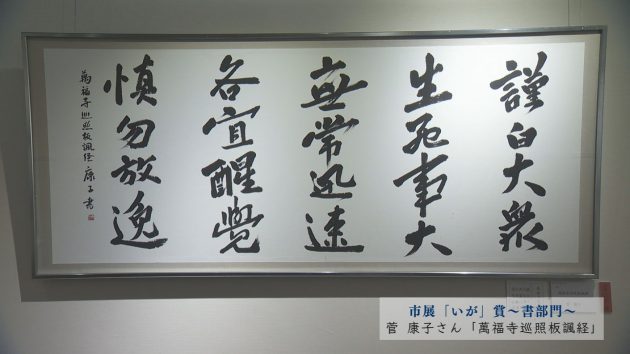 謹白大衆
生死事大
無常迅速
各宜醒覺
慎勿放逸
萬福寺巡照板諷経 康子書
市展「いが」賞～書部門～
菅 康子さん「萬福寺巡照板諷経」